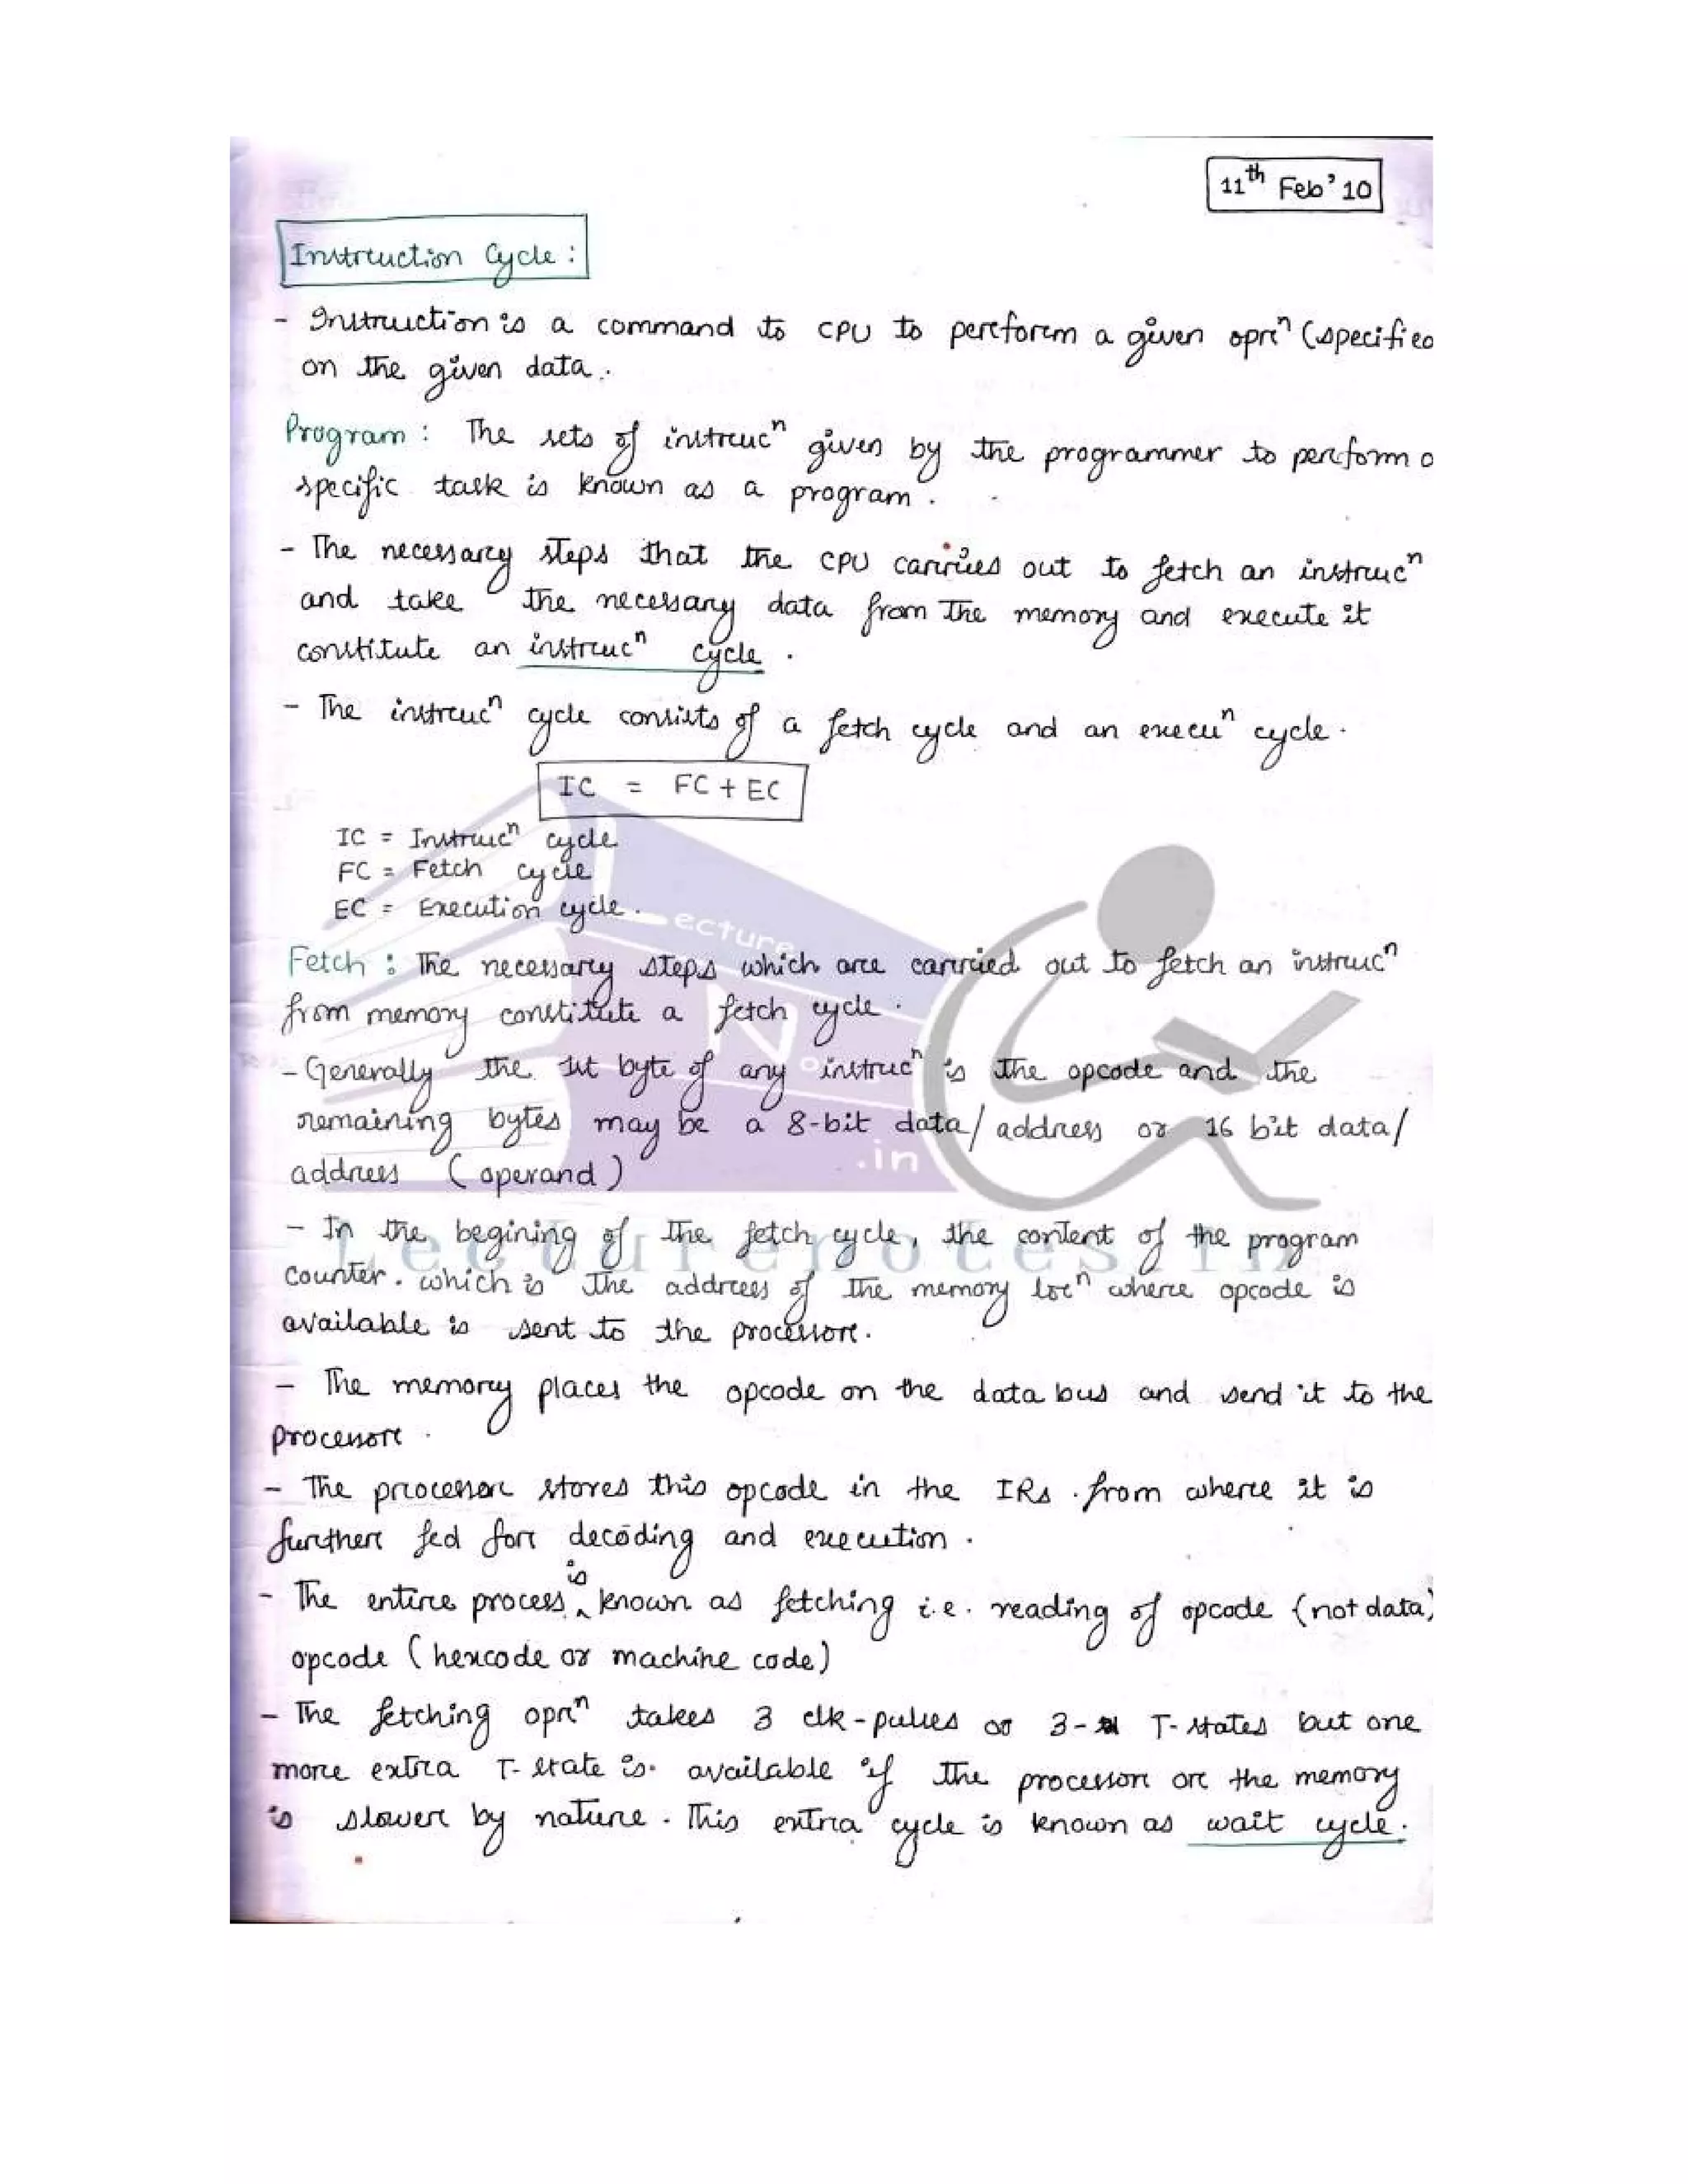 11th Feb' 10
Instruction Cycle :
- Instruction is a command to CPU to perform a given oprn (specified
on the given data.
Program : The sets of instrucn given by the programmer to perform a
specific task is known as a program.
- The necessary steps that the CPU carries out to fetch an instrucn
and take the necessary data from the memory and execute it
constitute an instrucn cycle.
- The instrucn cycle consists of a fetch cycle and an execun cycle.
IC = FC + EC
IC = Instrucn cycle
FC = Fetch cycle
EC = Execution cycle.
Fetch : The necessary steps which are carried out to fetch an instrucn
from memory constitute a fetch cycle.
- Generally the 1st byte of any instrucn is the opcode and the
remaining bytes may be a 8-bit data/address or 16 bit data/
address (operand)
- In the begining of the fetch cycle, the content of the program
counter. which is the address of the memory locn where opcode is
available is sent to the processor.
- The memory places the opcode on the data bus and send it to the
processor.
- The processor stores this opcode in the IRs. from where it is
further fed for decoding and execution.
- The entire process is known as fetching i.e. reading of opcode (not data)
opcode (hexcode or machine code)
- The fetching oprn takes 3 clk-pulses or 3- T-states but one
more extra T-state is. available if the processor or the memory
is slower by nature. This extra cycle is known as wait cycle.
Lecture
Notes
.in
Lecturenotes.in